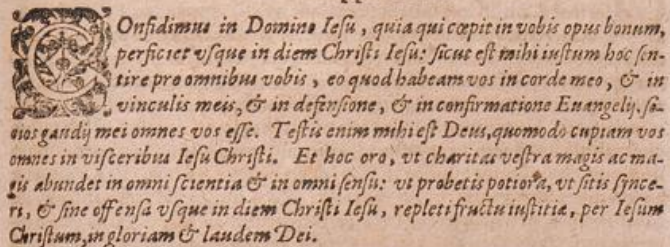 COnfidimus in Domino Iesu, quia qui cœpit in vobis opus bonum,
perficiet vsque in diem Christi Iesu: sicut est mihi iustum hoc sen-
tire pro omnibus vobis, eo quod habeam vos in corde meo, & in
vinculis meis, & in defensione, & in confirmatione Euangelij. so-
cios gaudij mei omnes vos esse. Testis enim mihi est Deus, quomodo cupiam vos
omnes in visceribus Iesu Christi. Et hoc oro, vt charitas vestra magis ac ma-
gis abundet in omni scientia & in omni sensu: vt probetis potiora, vt sitis synce-
ri, & sine offensa vsque in diem Christi Iesu, repleti fructu iustitiæ, per Iesum
Christum, in gloriam & laudem Dei.